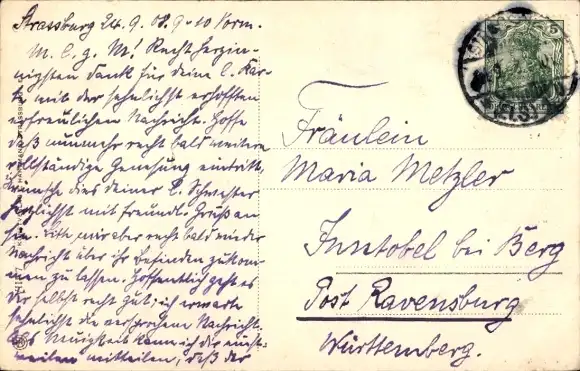 Strassburg 24.9.08. 9-10 Vorm.
M. l. g. M! Recht herzin-
nigsten Dank für deine l. Kar-
te mit der sehnlichst erhofften
erfreulichen Nachricht. Hoffe
daß nunmehr recht bald weitere
vollständige Genesung eintritt,
wünsche dies deiner l. Schwester
herzlichst mit freundl. Gruß an
sie. Bitte mir aber recht bald wieder
Nachricht über ihr Befinden zukom-
men zu lassen. Hoffentlich geht es
dir selbst recht gut; ich erwarte
sehnlichst die versprochene Nachricht.
Als Neuigkeit kann ich dir einst-
weilen mitteilen, daß der
Fräulein
Maria Metzler
Inntobel bei Berg
Post Ravensburg
Württemberg.
5